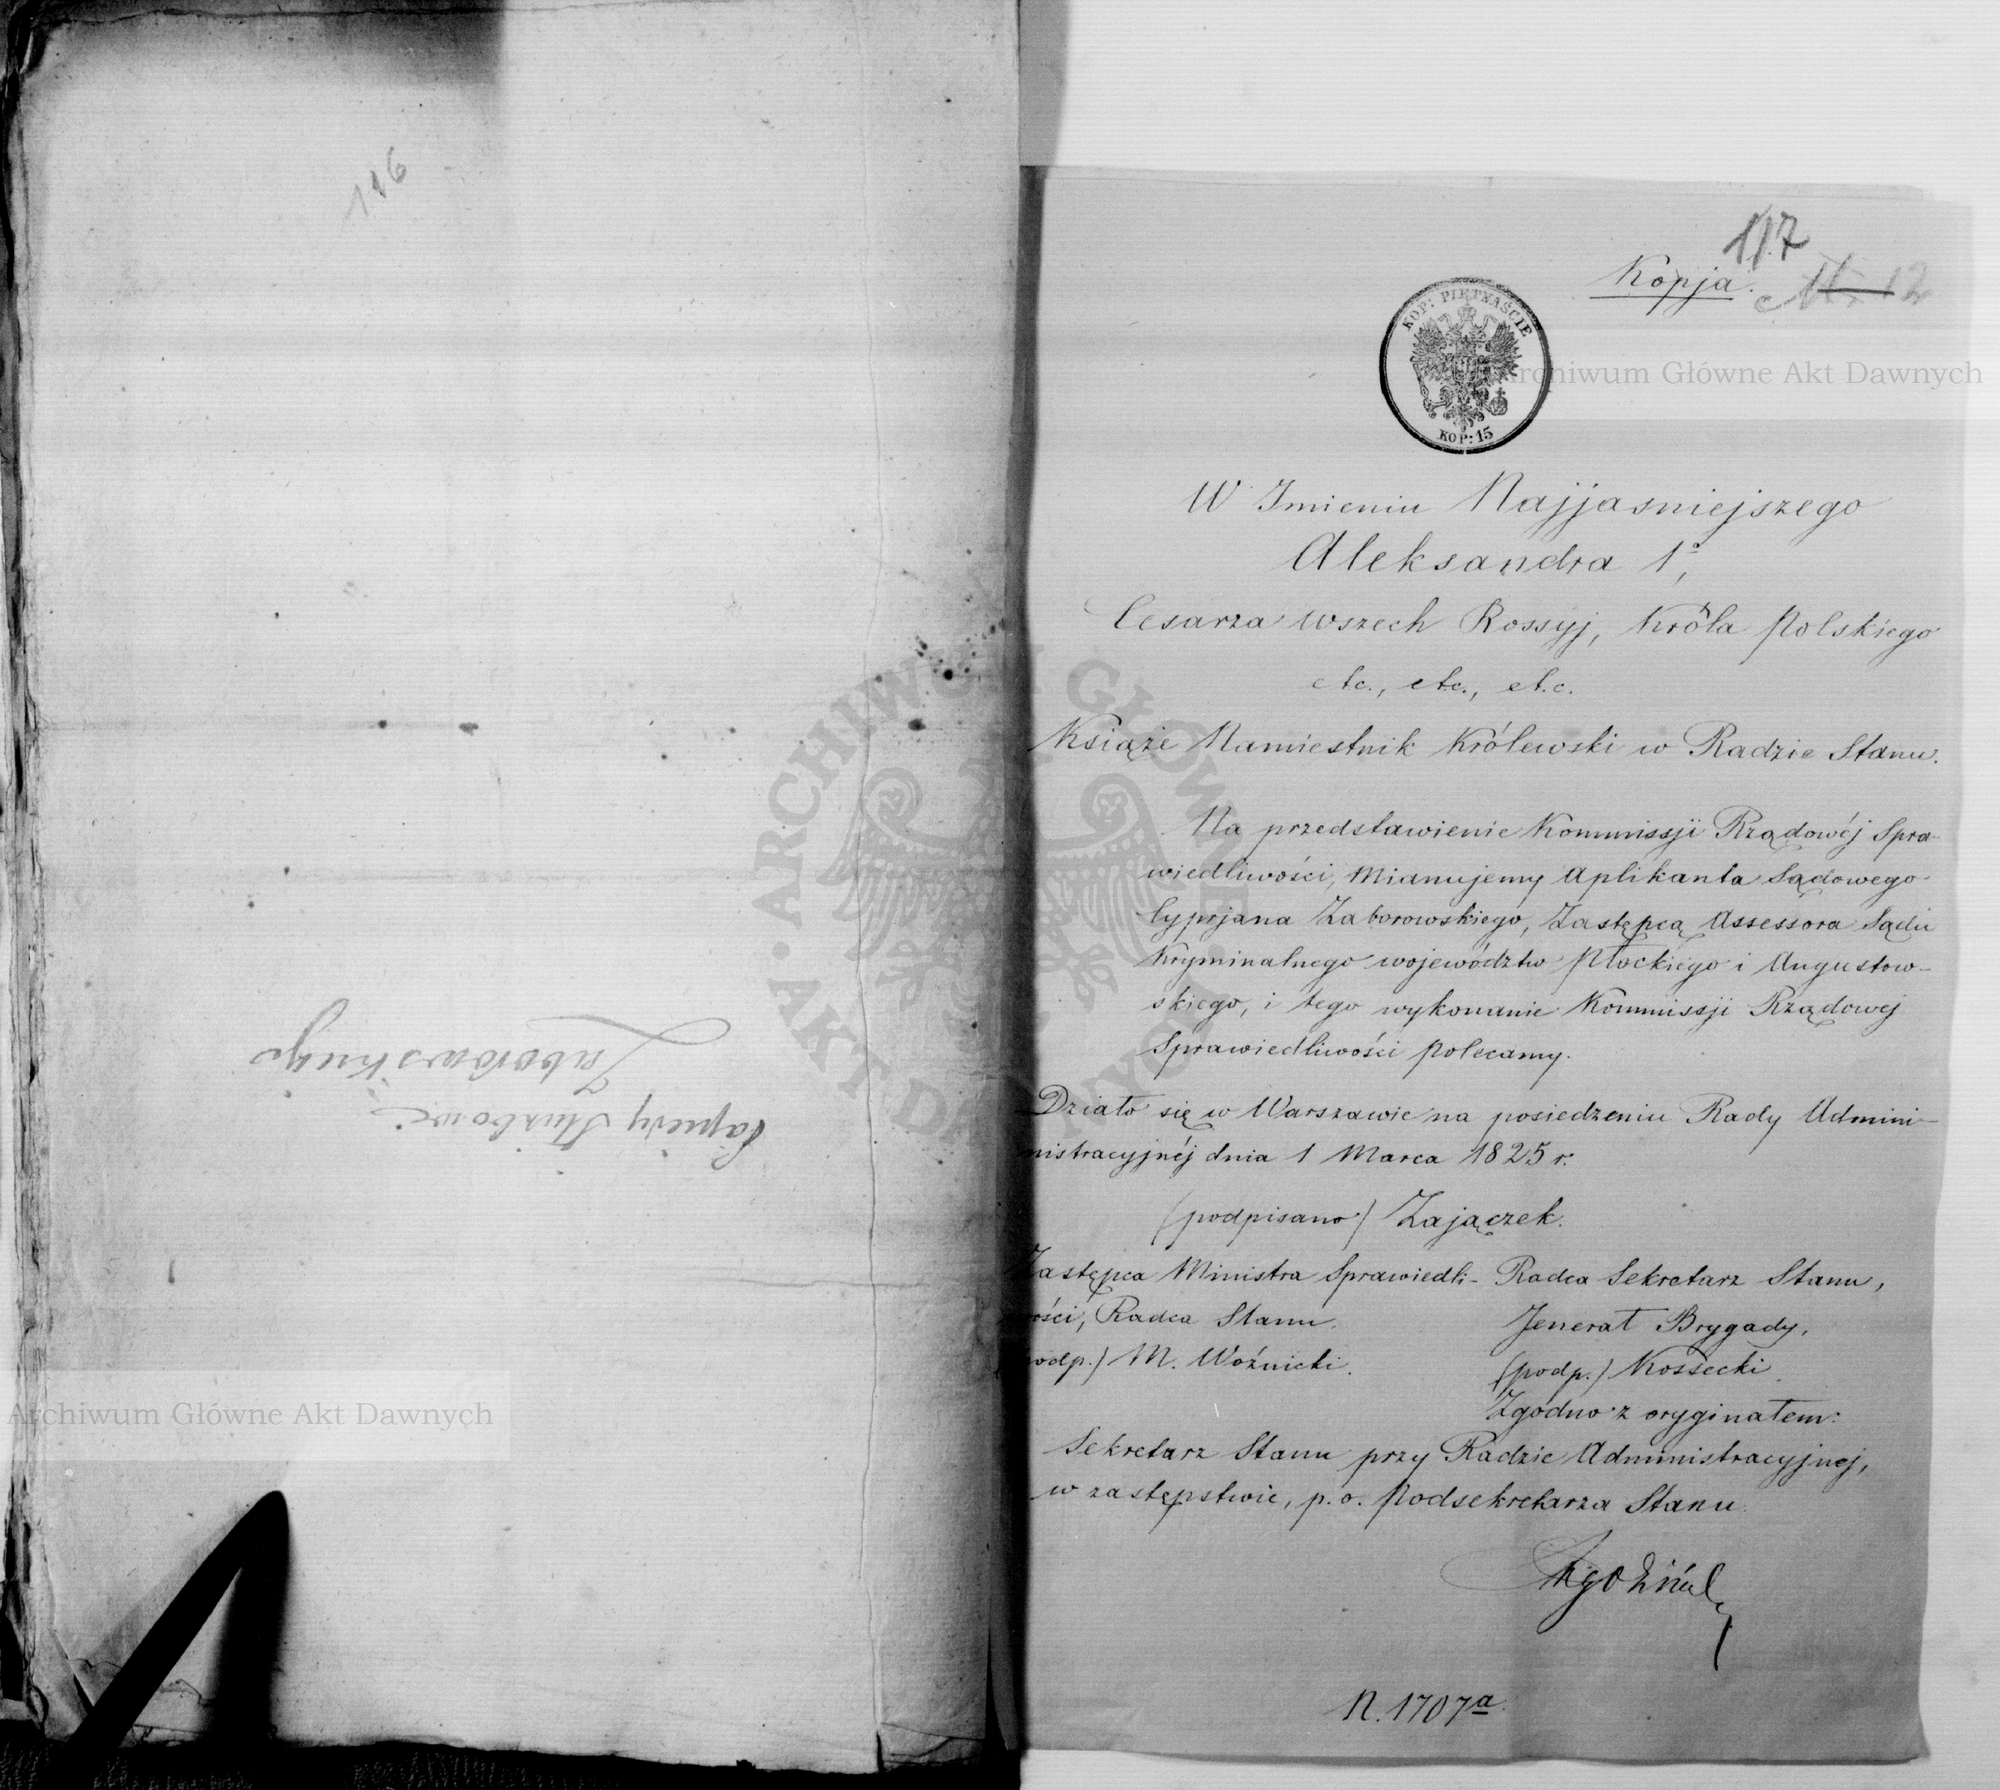 116
Papiery Służbowe
Zaborowskiego
Archiwum Główne Akt Dawnych
117
Kopja.
12
KOP: PIĘTNAŚCIE
KOP: 15
Archiwum Główne Akt Dawnych
W Imieniu Najjasniejszego
Aleksandra 1º,
Cesarza wszech Rossyj, Króla Polskiego
etc., etc., etc.
Książe Namiestnik Królewski w Radzie Stanu.
Na przedstawienie Kommissji Rządowéj Spra-
wiedliwości, mianujemy Aplikanta Sądowego
Cyprjana Zaborowskiego, Zastępcą Assessora Sądu
Kryminalnego województw Płockiego i Augustow-
skiego, i tego wykonanie Kommissji Rządowej
Sprawiedliwości polecamy.
Działo się w Warszawie na posiedzeniu Rady Admini-
nistracyjnéj dnia 1 Marca 1825 r.
(podpisano) Zajączek.
Zastępca Ministra Sprawiedli-
ości, Radca Stanu.
odp.) M. Woźnicki.
Radca Sekretarz Stanu,
Jenerał Brygady,
(podp.) Kossecki.
Zgodno z oryginałem:
Sekretarz Stanu przy Radzie Administracyjnej,
w zastępstwie, p. o. Podsekretarza Stanu.
N. 1707a
ARCHIWUM GŁÓWNE AKT DAWNYCH